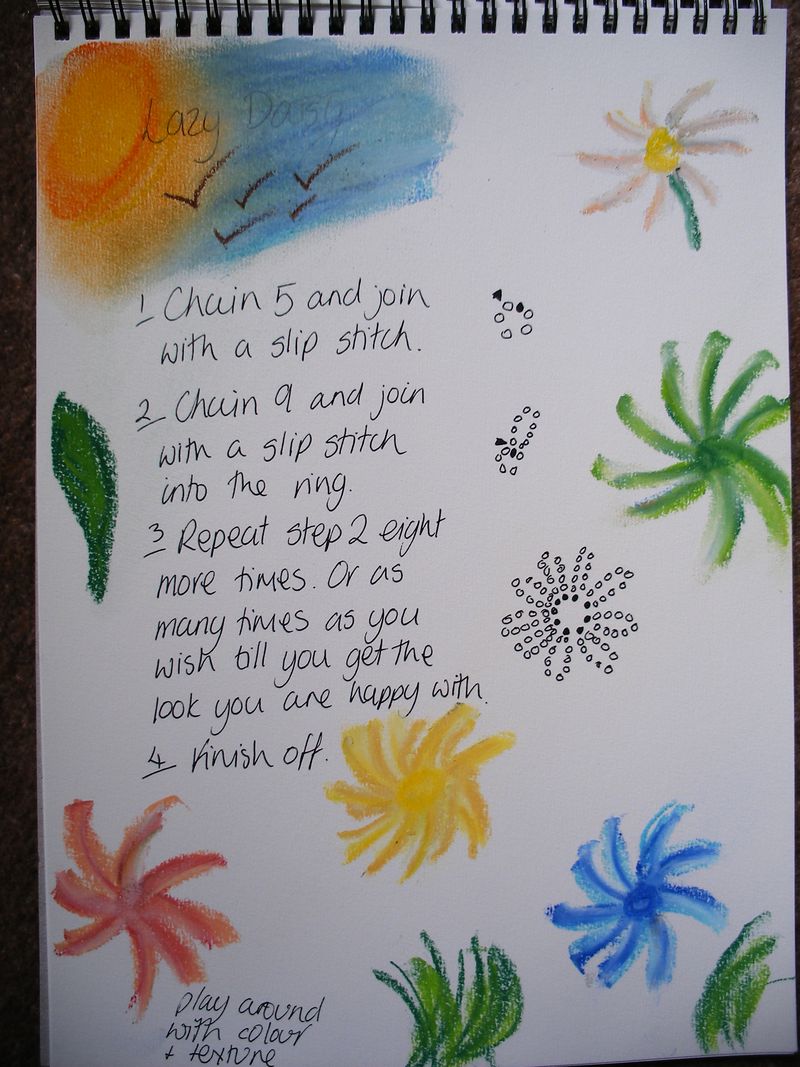 Lazy Daisy
1 Chain 5 and join
with a slip stitch.
2 Chain 9 and join
with a slip stitch
into the ring.
3 Repeat step 2 eight
more times. Or as
many times as you
wish till you get the
look you are happy with.
4 Finish off.
play around
with colour
+ texture